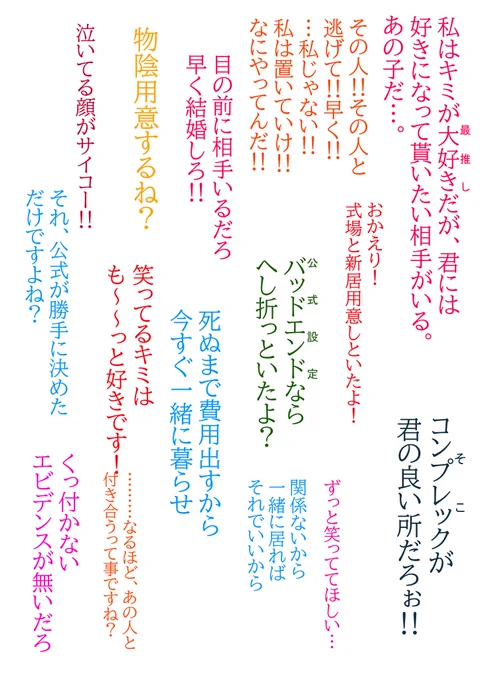 私はキミが大好きだが、君には
最推し
好きになって貰いたい相手がいる。
あの子だ…。
その人!!その人と
逃げて!!早く!!
…私じゃない!!
私は置いていけ!!
なにやってんだ!!
目の前に相手いるだろ
早く結婚しろ!!
物陰用意するね?
泣いてる顔がサイコー!!
おかえり!
式場と新居用意しといたよ!
バッドエンドなら
公式設定
へし折っといたよ?
死ぬまで費用出すから
今すぐ一緒に暮らせ
笑ってるキミは
も〜〜っと好きです!
それ、公式が勝手に決めた
だけですよね?
コンプレックが
そこ
君の良い所だろぉ!!
ずっと笑っててほしい…
関係ないから
一緒に居れば
それでいいから
………なるほど、あの人と
付き合うって事ですね?
くっ付かない
エビデンスが無いだろ